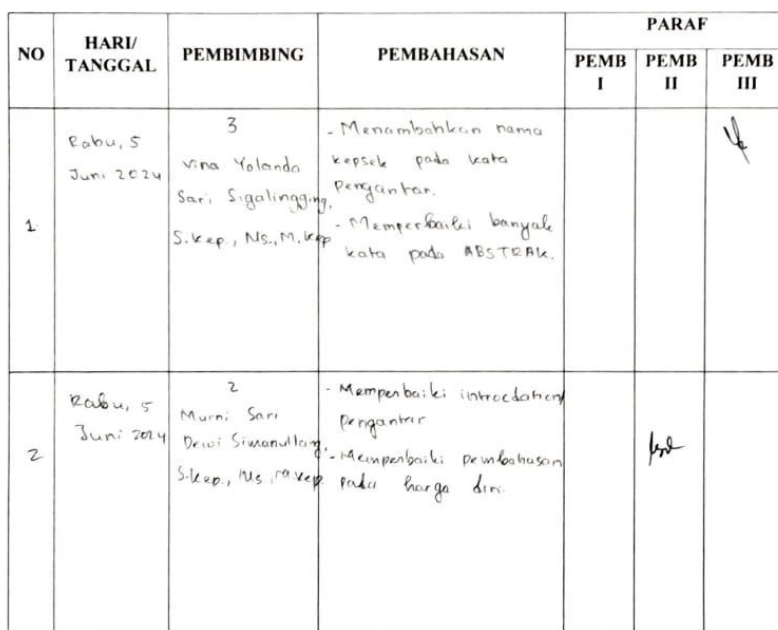 NO HARI/ TANGGAL PEMBIMBING PEMBAHASAN PARAF
PEMB I PEMB II PEMB III
1
Rabu, 5
Juni 2024
3
Vina Yolanda
Sari Sigalingging,
S.Kep., Ns., M.Kep
- Menambahkan nama
kepsek pada kata
pengantar.
- Memperbaiki banyak
kata pada ABSTRAK.
2
Rabu, 5
Juni 2024
2
Murni Sari
Dewi Simanullang,
S.Kep., Ns., M.Kep
- Memperbaiki
pengantar
- Memperbaiki pembahasan
pada harga diri.